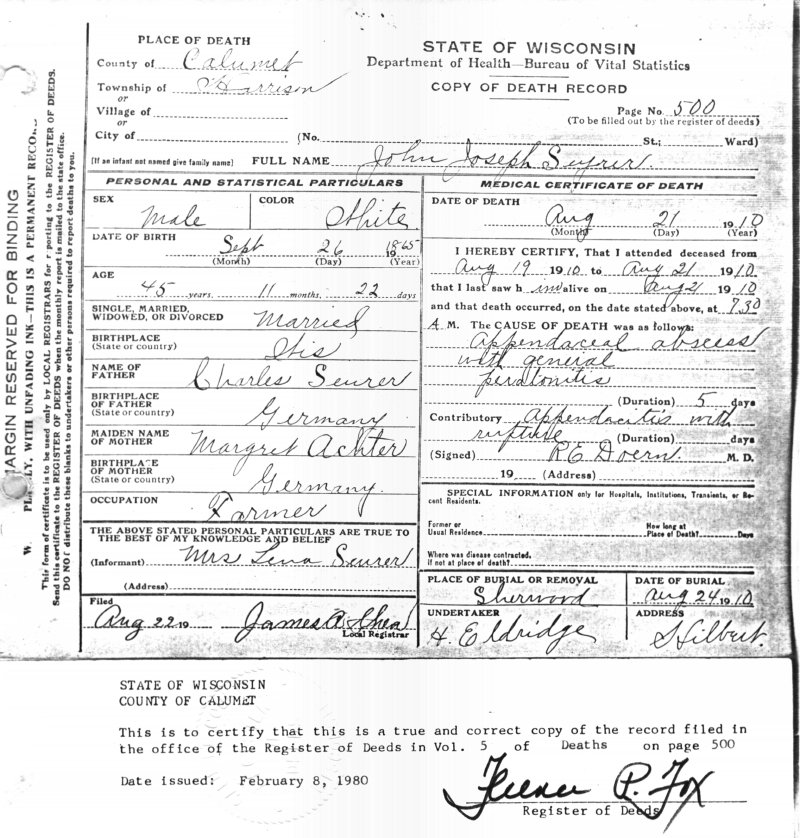 PLACE OF DEATH
County of Calumet
Township of Harrison
or
Village of
or
City of
STATE OF WISCONSIN
Department of Health—Bureau of Vital Statistics
COPY OF DEATH RECORD
Page No. 500
(To be filled out by the register of deeds)
(No. St.; Ward)
[If an infant not named give family name) FULL NAME John Joseph Seurer
PERSONAL AND STATISTICAL PARTICULARS
SEX Male COLOR White
DATE OF BIRTH Sept 26 1865
(Month) (Day) (Year)
AGE
45 years, 11 months, 22 days
SINGLE, MARRIED,
WIDOWED, OR DIVORCED Married
BIRTHPLACE
(State or country) Wis
NAME OF
FATHER Charles Seurer
BIRTHPLACE
OF FATHER
(State or country) Germany
MAIDEN NAME
OF MOTHER Margret Achter
BIRTHPLACE
OF MOTHER
(State or country) Germany
OCCUPATION Farmer
THE ABOVE STATED PERSONAL PARTICULARS ARE TRUE TO
THE BEST OF MY KNOWLEDGE AND BELIEF
(Informant) Mrs Lena Seurer
(Address)
Filed
Aug 22 19 James A Shea
Local Registrar
MEDICAL CERTIFICATE OF DEATH
DATE OF DEATH
Aug 21 1910
(Month) (Day) (Year)
I HEREBY CERTIFY, That I attended deceased from
Aug 19 1910 to Aug 21 1910
that I last saw him alive on Aug 21 1910
and that death occurred, on the date stated above, at 7.30
A M. The CAUSE OF DEATH was as follows:
Appendaceal abscess
with general
peratonitis
(Duration) 5 days
Contributory Appendacitis with
rupture (Duration) days
(Signed) R E Doern M. D.
19 (Address)
SPECIAL INFORMATION only for Hospitals, Institutions, Transients, or Re-
cent Residents.
Former or
Usual Residence
How long at
Place of Death? Days
Where was disease contracted,
if not at place of death?
PLACE OF BURIAL OR REMOVAL
Sherwood
DATE OF BURIAL
Aug 24 1910
UNDERTAKER
H. Eldridge
ADDRESS
Hilbert
MARGIN RESERVED FOR BINDING
WITH UNFADING INK—THIS IS A PERMANENT RECORD
This form of certificate is to be used only by LOCAL REGISTRARS for reporting to the REGISTER OF DEEDS.
Send this certificate to the REGISTER OF DEEDS when the monthly report is mailed to the state office.
DO NOT distribute these blanks to undertakers or other persons required to report deaths to you.
STATE OF WISCONSIN
COUNTY OF CALUMET
This is to certify that this is a true and correct copy of the record filed in
the office of the Register of Deeds in Vol. 5 of Deaths on page 500
Date issued: February 8, 1980
P. Fox
Register of Deeds